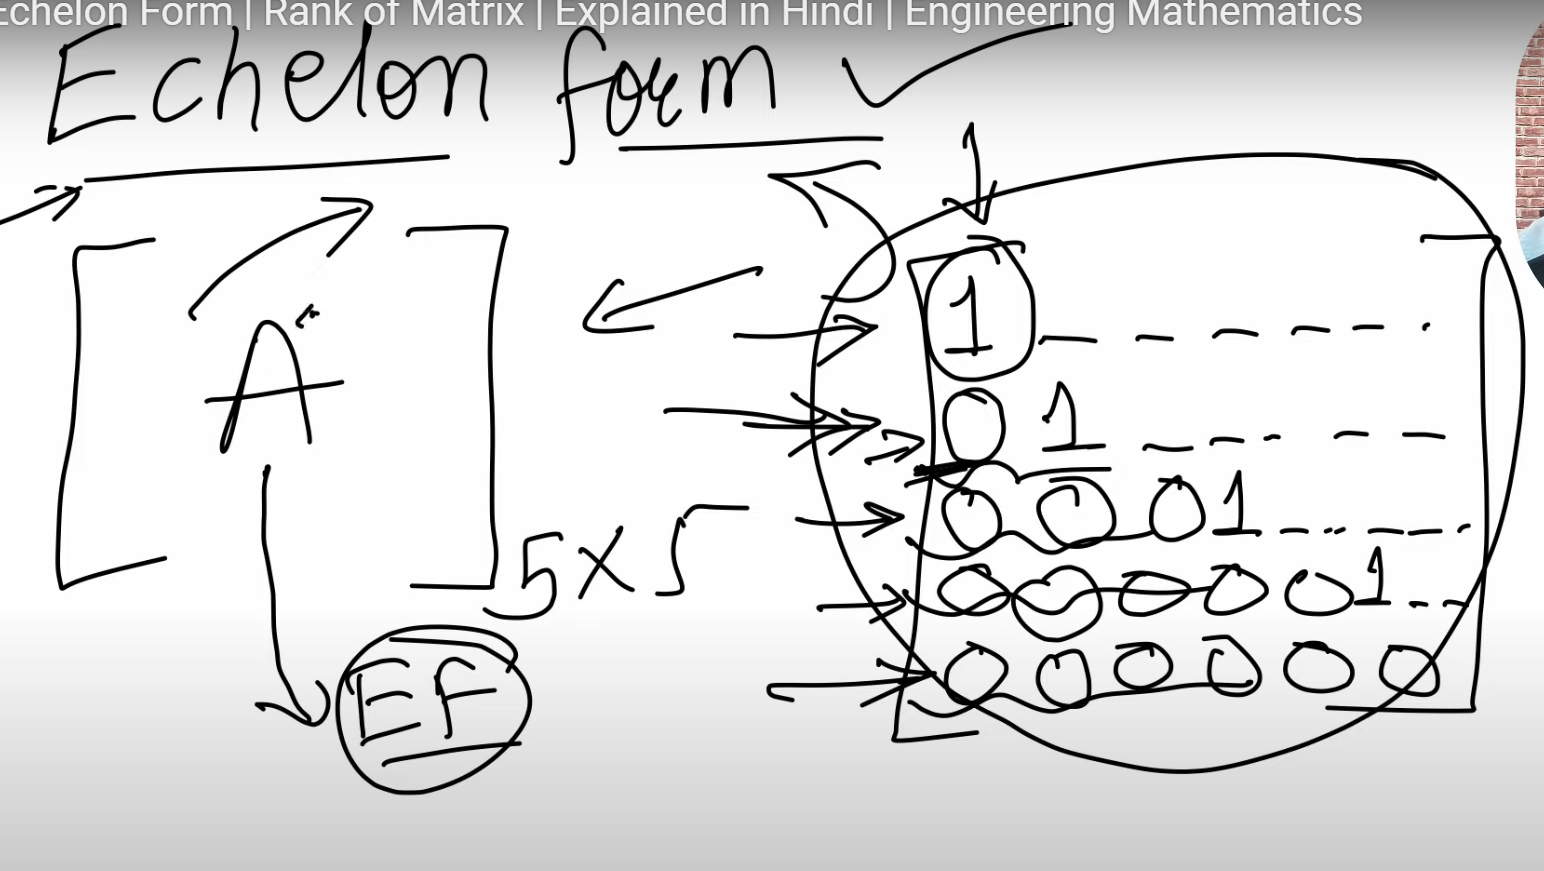 Echelon Form | Rank of Matrix | Explained in Hindi | Engineering Mathematics
Echelon form
A
5×5
EF
1 _ _ _ _ _
0 1 _ _ _ _ _
0 0 0 1 _ _ _ _
0 0 0 0 0 1 _ _
0 0 0 0 0 0